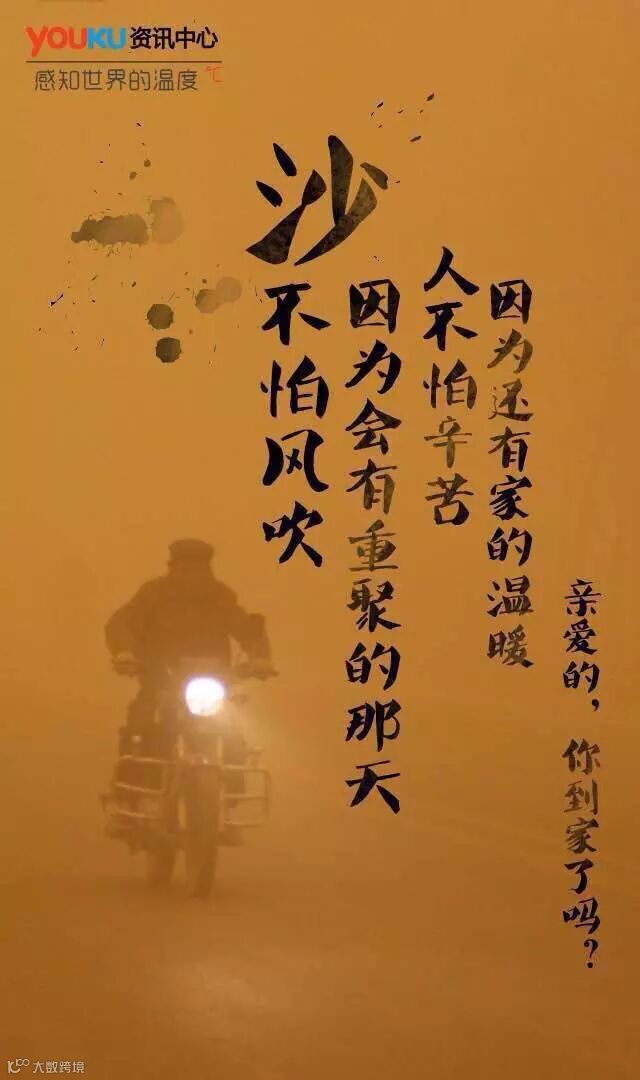 YOUKU 资讯中心
感知世界的温度℃
沙不怕风吹
因为会有重聚的那天
人不怕辛苦
因为还有家的温暖
亲爱的，你到家了吗？
大数跨境